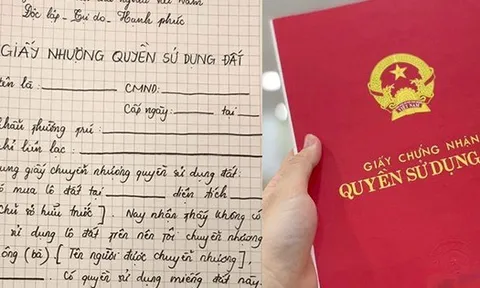 Độc lập - Tự do - Hạnh phúc
GIẤY NHƯỜNG QUYỀN SỬ DỤNG ĐẤT
tên là: CMND:
Cấp ngày: tại
khẩu thường trú:
chỉ liên lạc:
dung giấy chuyển nhượng quyền sử dụng đất:
có mua lô đất tại diện tích
chủ sở hữu trước]. Nay nhận thấy không có
sử dụng lô đất trên nên tôi chuyển nhượng
ông (bà). [Tên người được chuyển nhượng],
Có quyền sử dụng miếng đất này.
VIỆT NAM
GIẤY CHỨNG NHẬN
QUYỀN SỬ DỤNG